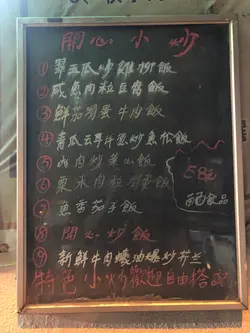 開心小炒
① 翠玉瓜炒雞柳飯
② 咸魚肉粒豆腐飯
③ 鮮茄滑蛋牛肉飯
④ 青瓜云耳牛𩠌炒魚松飯
⑤ 肉炒菜心飯
⑥ 粟米肉粒滑蛋飯
⑦ 魚香茄子飯
58元
⑧ 開心炒飯
⑨ 新鮮牛肉蠔油爆炒芥兰
特色小炒歡迎自由搭配